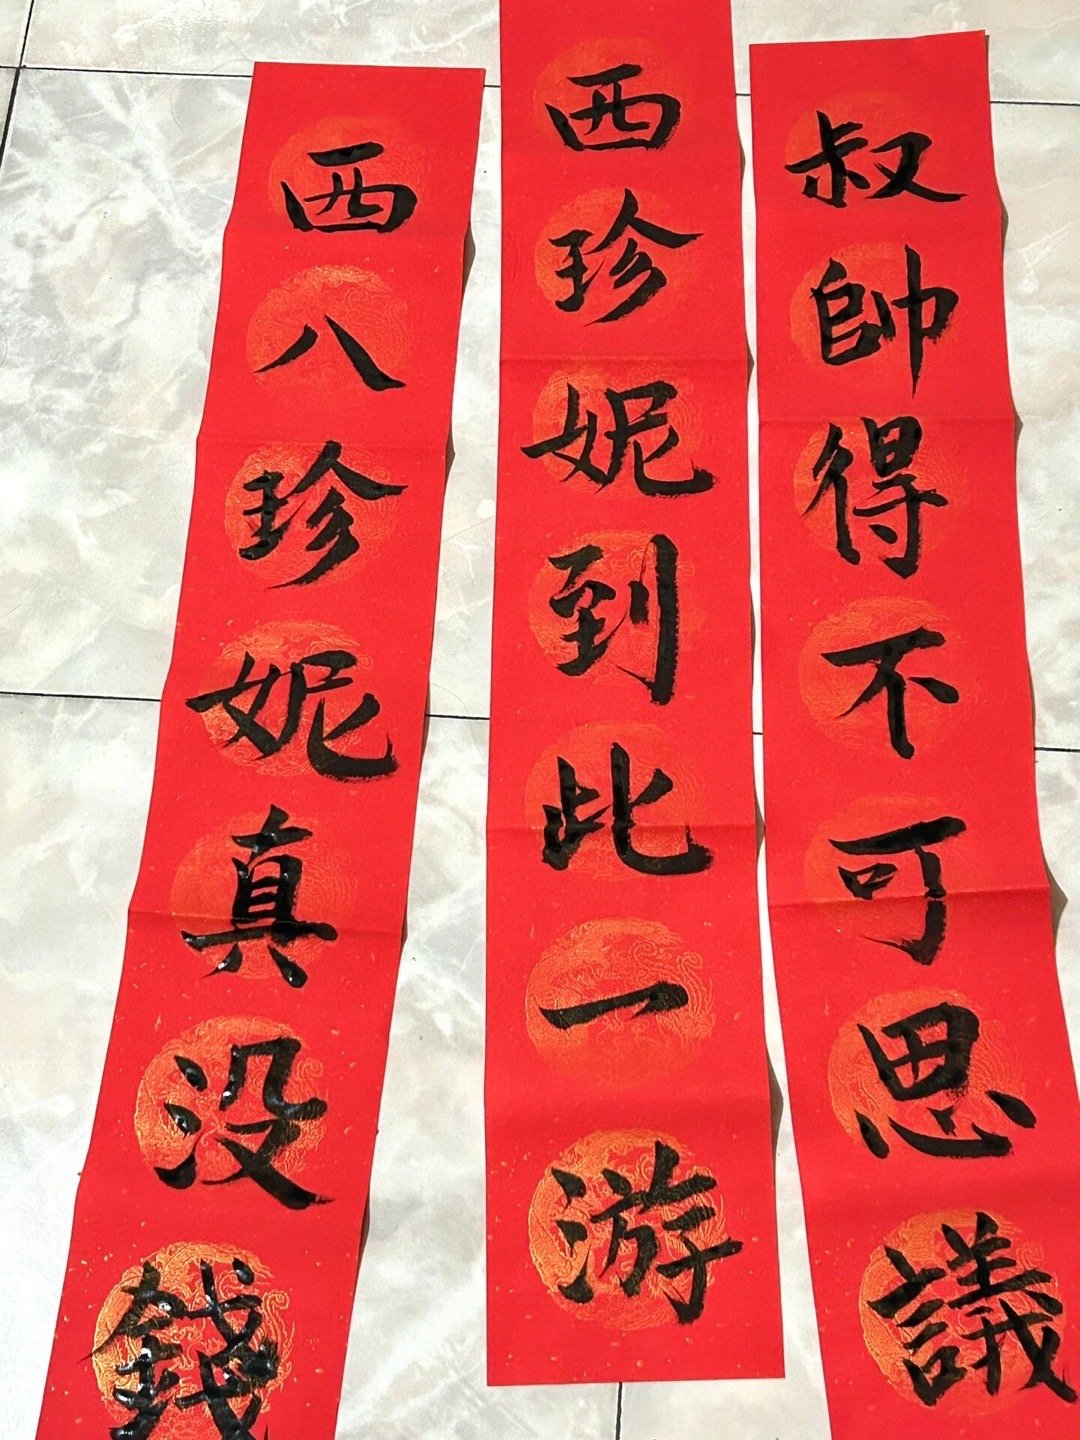 叔帥得不可思議
西珍妮到此一游
西八珍妮真没錢